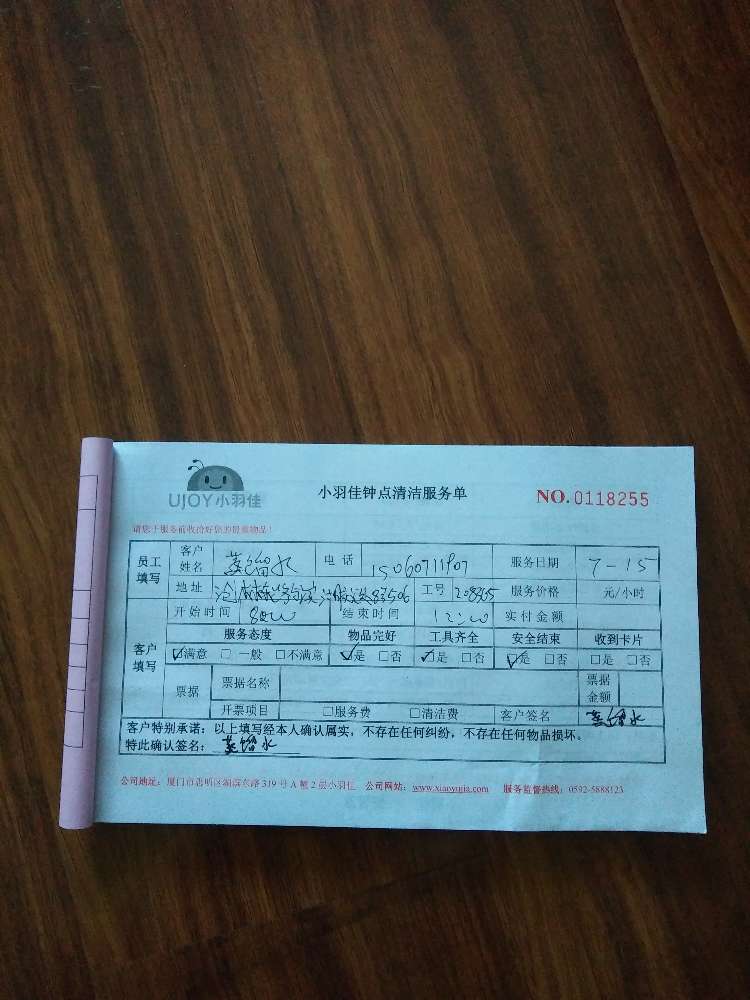 UJOY小羽佳
小羽佳钟点清洁服务单
NO.0118255
请您于服务前收拾好您的贵重物品!
员工填写 客户姓名 蒸馏水 电话 15060711907 服务日期 7-15
地址 工号 208365 服务价格 元/小时
客户填写 开始时间 8:00 结束时间 12:00 实付金额
服务态度 物品完好 工具齐全 安全结束 收到卡片
☑满意 □一般 □不满意 ☑是 □否 ☑是 □否 ☑是 □否 □是 □否
票据 票据名称 票据金额
开票项目 □服务费 □清洁费 客户签名 蒸馏水
客户特别承诺:以上填写经本人确认属实,不存在任何纠纷,不存在任何物品损坏。
特此确认签名:蒸馏水
公司地址:厦门市思明区湖滨东路319号A幢2层小羽佳 公司网站:www.xiaoyujia.com 服务监督热线:0592-5888123